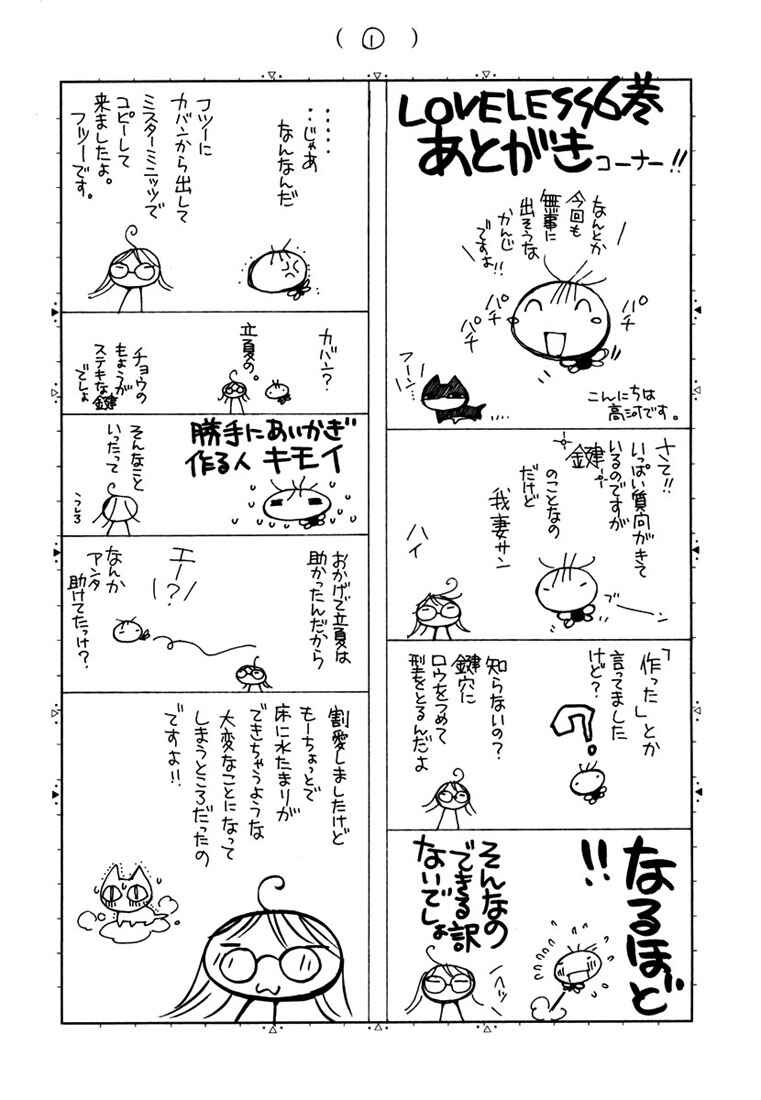 (①)
LOVELESS6巻
あとがき
コーナー!!
なんとか
今回も
無事に
出そうな
かんじ
ですよ!!
パチ
パチ
パチ
フーン…
こんにちは
高河です。
さて!!
いっぱい質問がきて
いるのですが
鍵
のことなの
だけど
我妻サン
ブーン
ハイ
「作った」とか
言ってました
けど?
?
知らないの?
鍵穴に
ロウをつめて
型をとるんだよ
なるほど
!!
そんなの
できる訳
ないでしょ
ヘッ
‥‥‥
‥じゃあ
なんなんだ
フツーに
カバンから出して
ミスターミニッツで
コピーして
来ましたよ。
フツーです。
カバン?
立夏の。
チョウの
もようが
ステキな鍵
でしょ
勝手にあいかぎ
作る人 キモイ
そんなこと
いったって
うしろ
おかげで立夏は
助かったんだから
エー!?
なんか
アンタ
助けてたっけ?
割愛しましたけど
もーちょっとで
床に水たまりが
できちゃうような
大変なことになって
しまうところだったの
ですよ!!